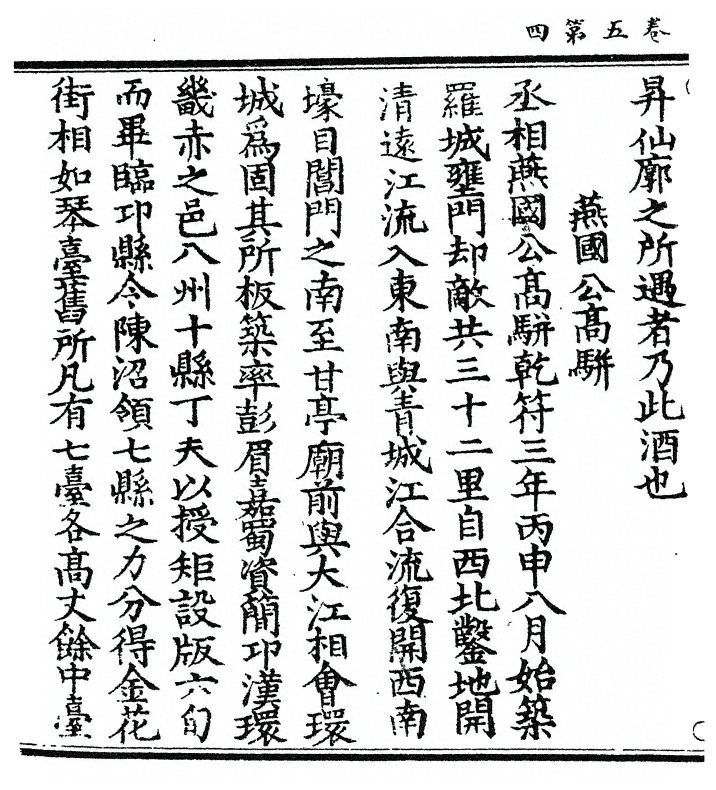 卷五第四
昇仙廓之所遇者乃此酒也
燕國公高駢
丞相燕國公高駢乾符三年丙申八月始築
羅城壅門却敵共三十二里自西北鑿地開
清遠江流入東南與青城江合流復開西南
壕自閶門之南至甘亭廟前與大江相會環
城爲固其所板築率彭眉嘉蜀資簡卭漢環
畿赤之邑八州十縣丁夫以授矩設版六旬
而畢臨卭縣令陳沼領七縣之力分得金花
街相如琴臺舊所凡有七臺各高丈餘中臺